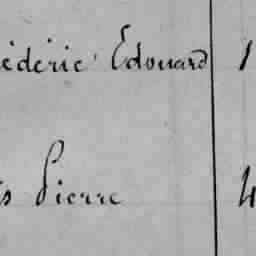 édéric Edouard 1
s Pierre 4